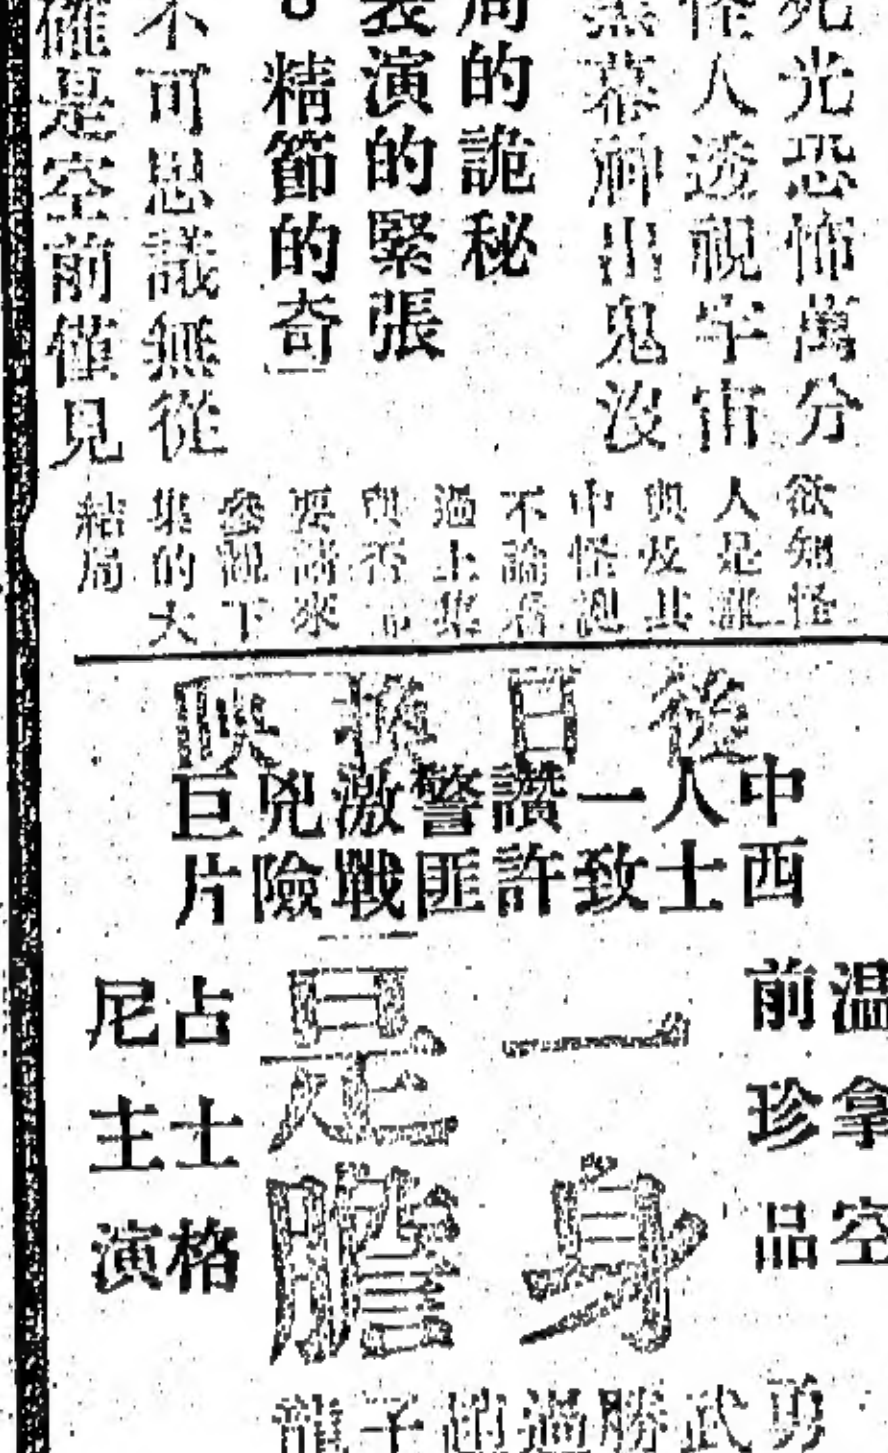 死光恐怖萬分
怪人透視宇宙
黑幕神出鬼沒
局的詭秘
表演的緊張
精節的奇
不可思議無從
確是空前僅見
欲知怪
人是誰
與及其
中怪誕
不論看
過上集
與否
要請來
參觀下
集的大
結局
後日換映
中西人士一致讚許警匪激戰兇險巨片
溫拿空
前珍品
一身
是膽
占士格
尼主演
勇武勝過趙子龍